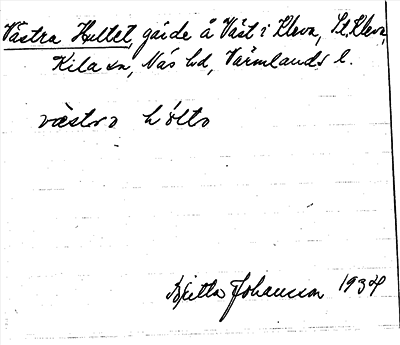 Västra Hultet, gärde å Väst i Kleva, St. Kleva,
Kila sn, Näs hd, Värmlands l.
västra hölta
Britta Johansson 1934